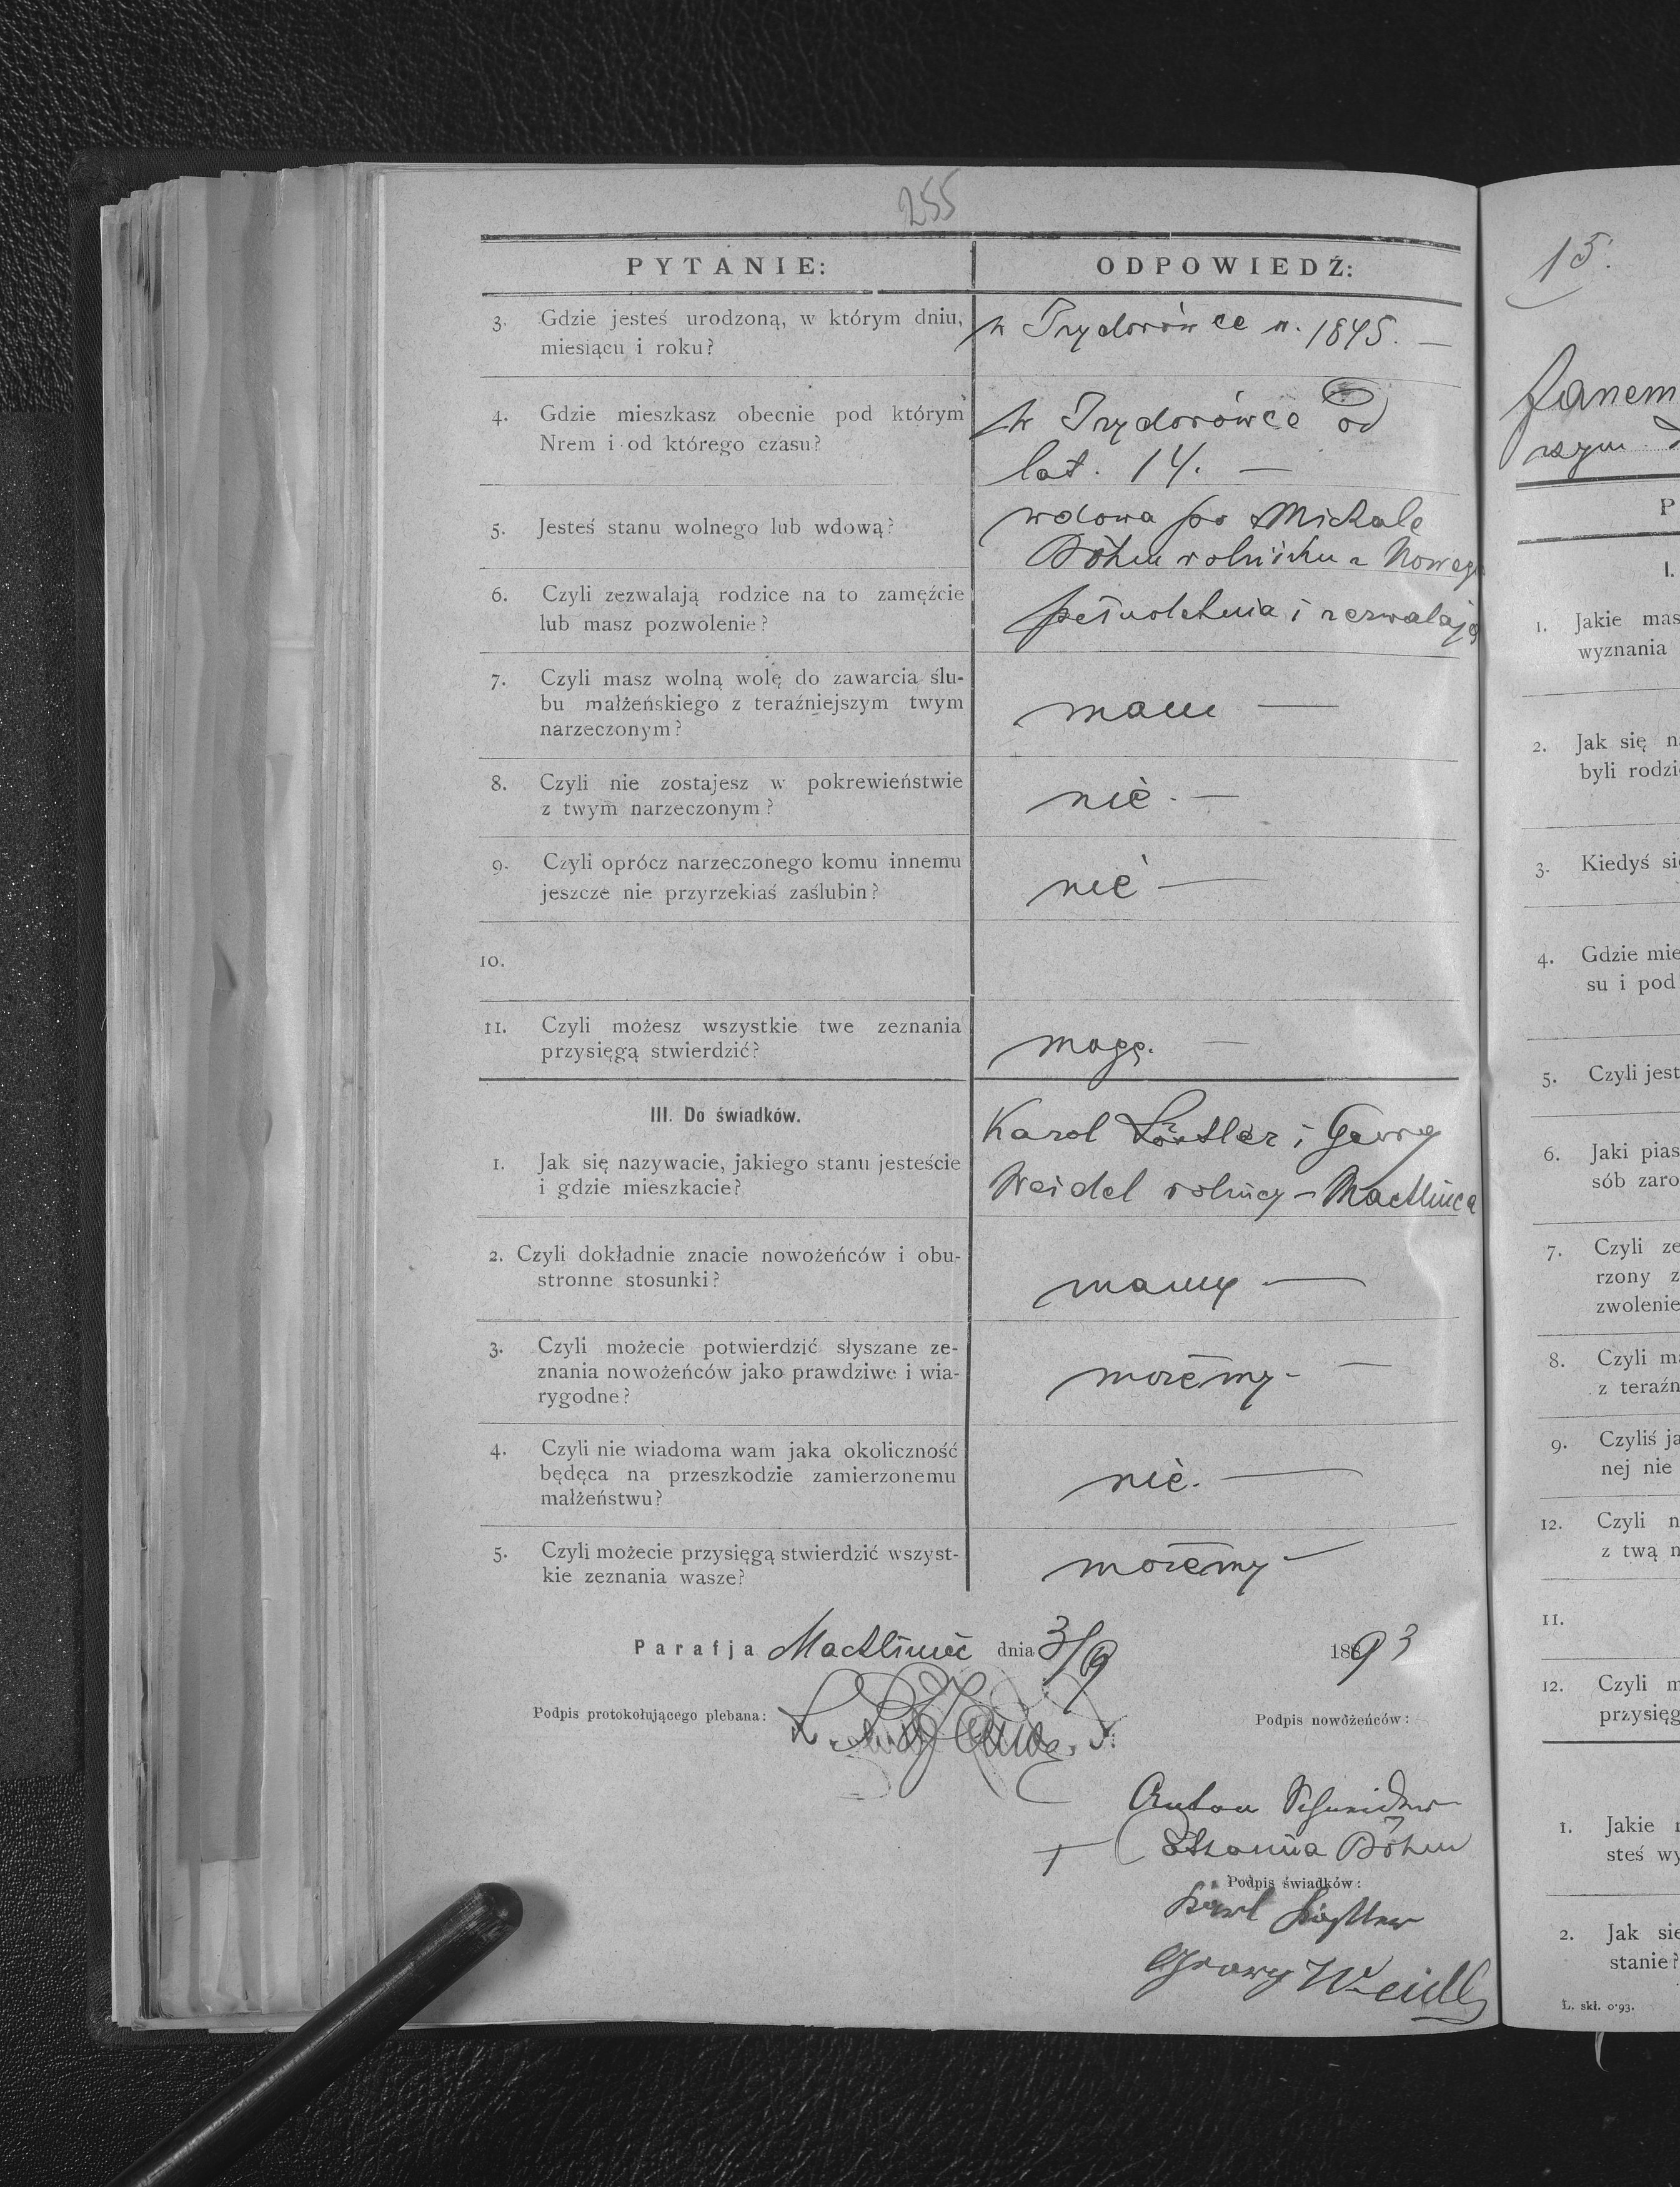 255
PYTANIE: ODPOWIEDŹ:
3. Gdzie jesteś urodzoną, w którym dniu, miesiącu i roku?
w Izydorówce r. 1845. —
4. Gdzie mieszkasz obecnie pod którym Nrem i od którego czasu?
w Izydorówce od
lat. 14. —
5. Jesteś stanu wolnego lub wdową?
wdowa po Michale
Böhm rolniku z Nowego
6. Czyli zezwalają rodzice na to zamęźcie
lub masz pozwolenie?
pełnoletnia i zezwalają
7. Czyli masz wolną wolę do zawarcia ślu-
bu małżeńskiego z teraźniejszym twym
narzeczonym?
mam —
8. Czyli nie zostajesz w pokrewieństwie
z twym narzeczonym?
nie. —
9. Czyli oprócz narzeczonego komu innemu
jeszcze nie przyrzekłaś zaślubin?
nie —
10.
11. Czyli możesz wszystkie twe zeznania
przysięgą stwierdzić?
mogę. —
III. Do świadków.
1. Jak się nazywacie, jakiego stanu jesteście
i gdzie mieszkacie?
Karol i Georg
Weidel rolnicy
2. Czyli dokładnie znacie nowożeńców i obu-
stronne stosunki?
znamy —
3. Czyli możecie potwierdzić słyszane ze-
znania nowożeńców jako prawdziwe i wia-
rygodne?
możemy — —
4. Czyli nie wiadoma wam jaka okoliczność
będęca na przeszkodzie zamierzonemu
małżeństwu?
nie. —
5. Czyli możecie przysięgą stwierdzić wszyst-
kie zeznania wasze?
możemy —
Parafja Machliniec dnia 3/9 1893
Podpis protokołującego plebana:
Podpis nowożeńców:
Anton Schneider
+ Böhm
Podpis świadków:
Karl
Georg Weidl
15.
Janem
P
I.
1. Jakie mas
wyznania
2. Jak się n
byli rodzi
3. Kiedyś si
4. Gdzie mie
su i pod
5. Czyli jest
6. Jaki pias
sób zaro
7. Czyli ze
rzony z
zwolenie
8. Czyli ma
z teraźn
9. Czyliś ja
nej nie
12. Czyli n
z twą n
11.
12. Czyli m
przysięg
1. Jakie
steś wy
2. Jak sie
stanie?
L. skł. 0·93.